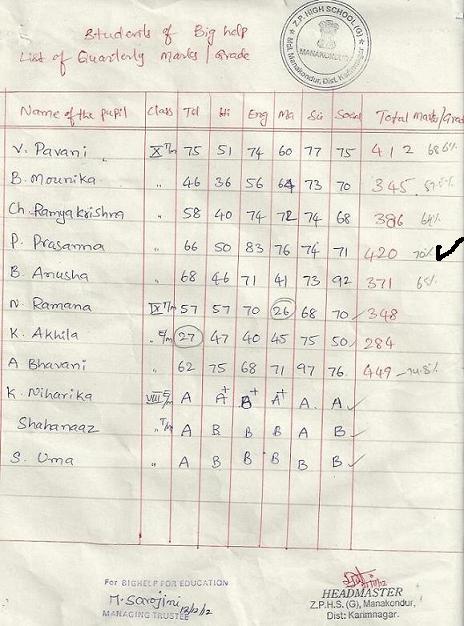 Students of Big help
List of Quarterly Marks/Grade
Z.P. HIGH SCHOOL (G) MANAKONDUR Mdl. Manakondur, Dist. Karimnagar.
Name of the pupil Class Tel Hi Eng Ma Sci Social Total Marks/Grade
V. Pavani X T/m 75 51 74 60 77 75 412 68.6%
B. Mounika " 46 36 56 64 73 70 345 57.5%
Ch. Ramyakrishna " 58 40 74 72 74 68 386 64%
P. Prasanna " 66 50 83 76 74 71 420 70%
B. Anusha " 68 46 71 41 73 92 371 65%
N. Ramana IX T/m 57 57 70 26 68 70 348
K. Akhila " E/m 27 47 40 45 75 50 284
A Bhavani " 62 75 68 71 97 76 449 74.8%
K. Niharika VIII E/m A A+ B+ A+ A A
Shahanaaz " T/m A B B B A B
S. Uma " A B B B B B
For BIGHELP FOR EDUCATION
M. Sarojini 12/2/12
MANAGING TRUSTEE
HEADMASTER
Z.P.H.S. (G), Manakondur,
Dist: Karimnagar.